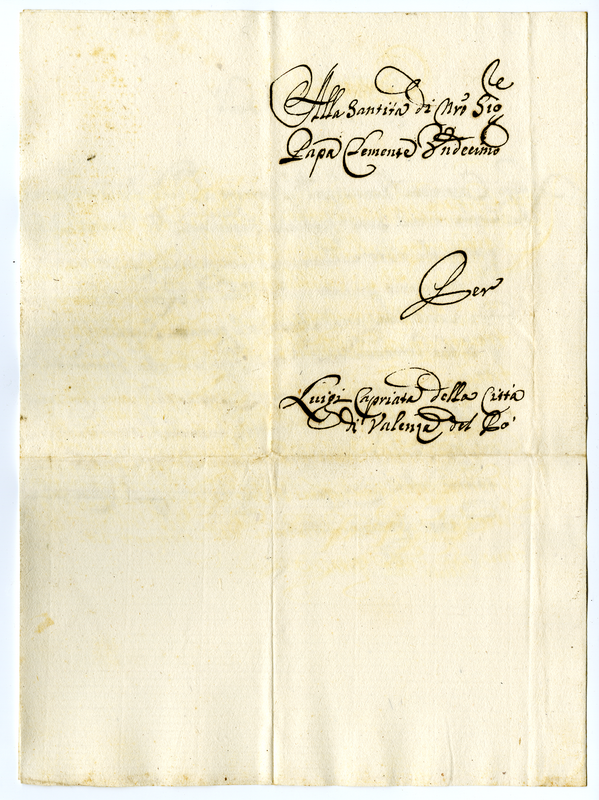 Alla Santità di Nro Sig.re
Papa Clemente Undecimo
Per
Luigi Capriata della Città
di Valenza del Pò